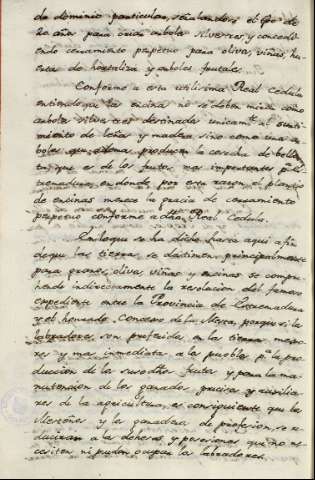 de dominio particular, señalandose el tpo de
20 años para criar arboles silvestres, y concedi-
endo cerramiento perpetuo para olivares, viñas, hu-
ertas de hortaliza y arboles frutales.
Conforme a esta utilisima Real Cedula
entiendo que la encina no se debe mirar como
arbol silvestre destinado unicamte al surti-
miento de leñas y madera sino como unos ar-
boles que producen la cosecha de bello-
ta que es de los frutos mas importantes pa Es-
tremadura, en donde por esta razon el plantio
de encinas merece la gracia de cerramiento
perpetuo conforme a dha Real Cedula.
En lo que se ha dicho hasta aqui a fin
de que las tierras se destinen principalmente
para granos, olivares viñas y encinas se compre-
hende indirectamente la resolucion del famoso
expediente entre la Provincia de Extremadura
y el honrado Concejo de la Mesta, porque si los
labradores son preferidos en las tierras mejo-
res y mas inmediatas a los pueblos pa la pro-
duccion de los susodhos frutos y para la ma-
nutencion de los ganados precisos y auxilia-
res de la agricultura, es consiguiente que los
Mesteños y los ganaderos de profesion, se re-
duzcan a las dehesas y posesiones que no ne-
cesiten ni puedan ocupar los labradores.